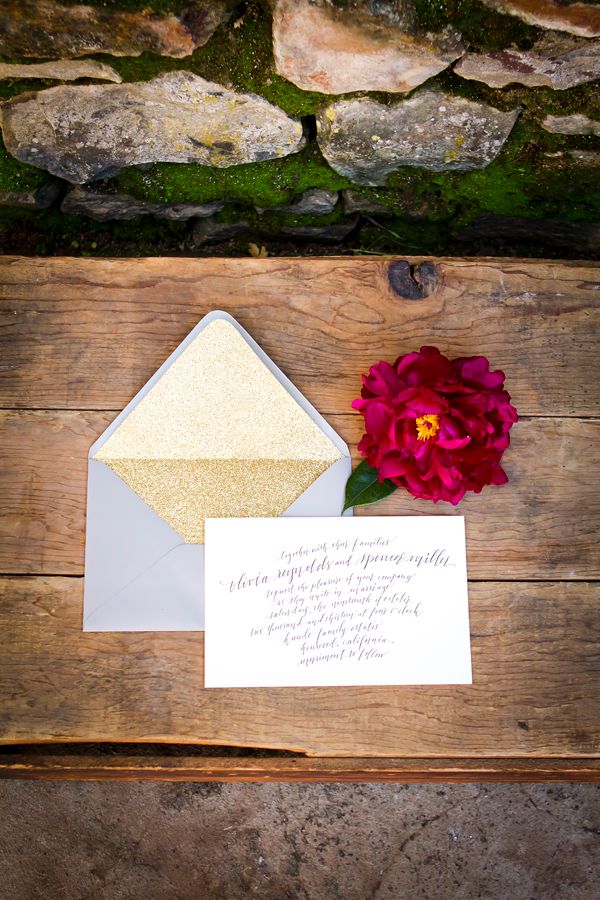 together with their families
olivia reynolds and spencer miller
request the pleasure of your company
as they unite in marriage
saturday, the nineteenth of october
two thousand and thirteen at four o'clock
family estates
kenwood, california
merriment to follow